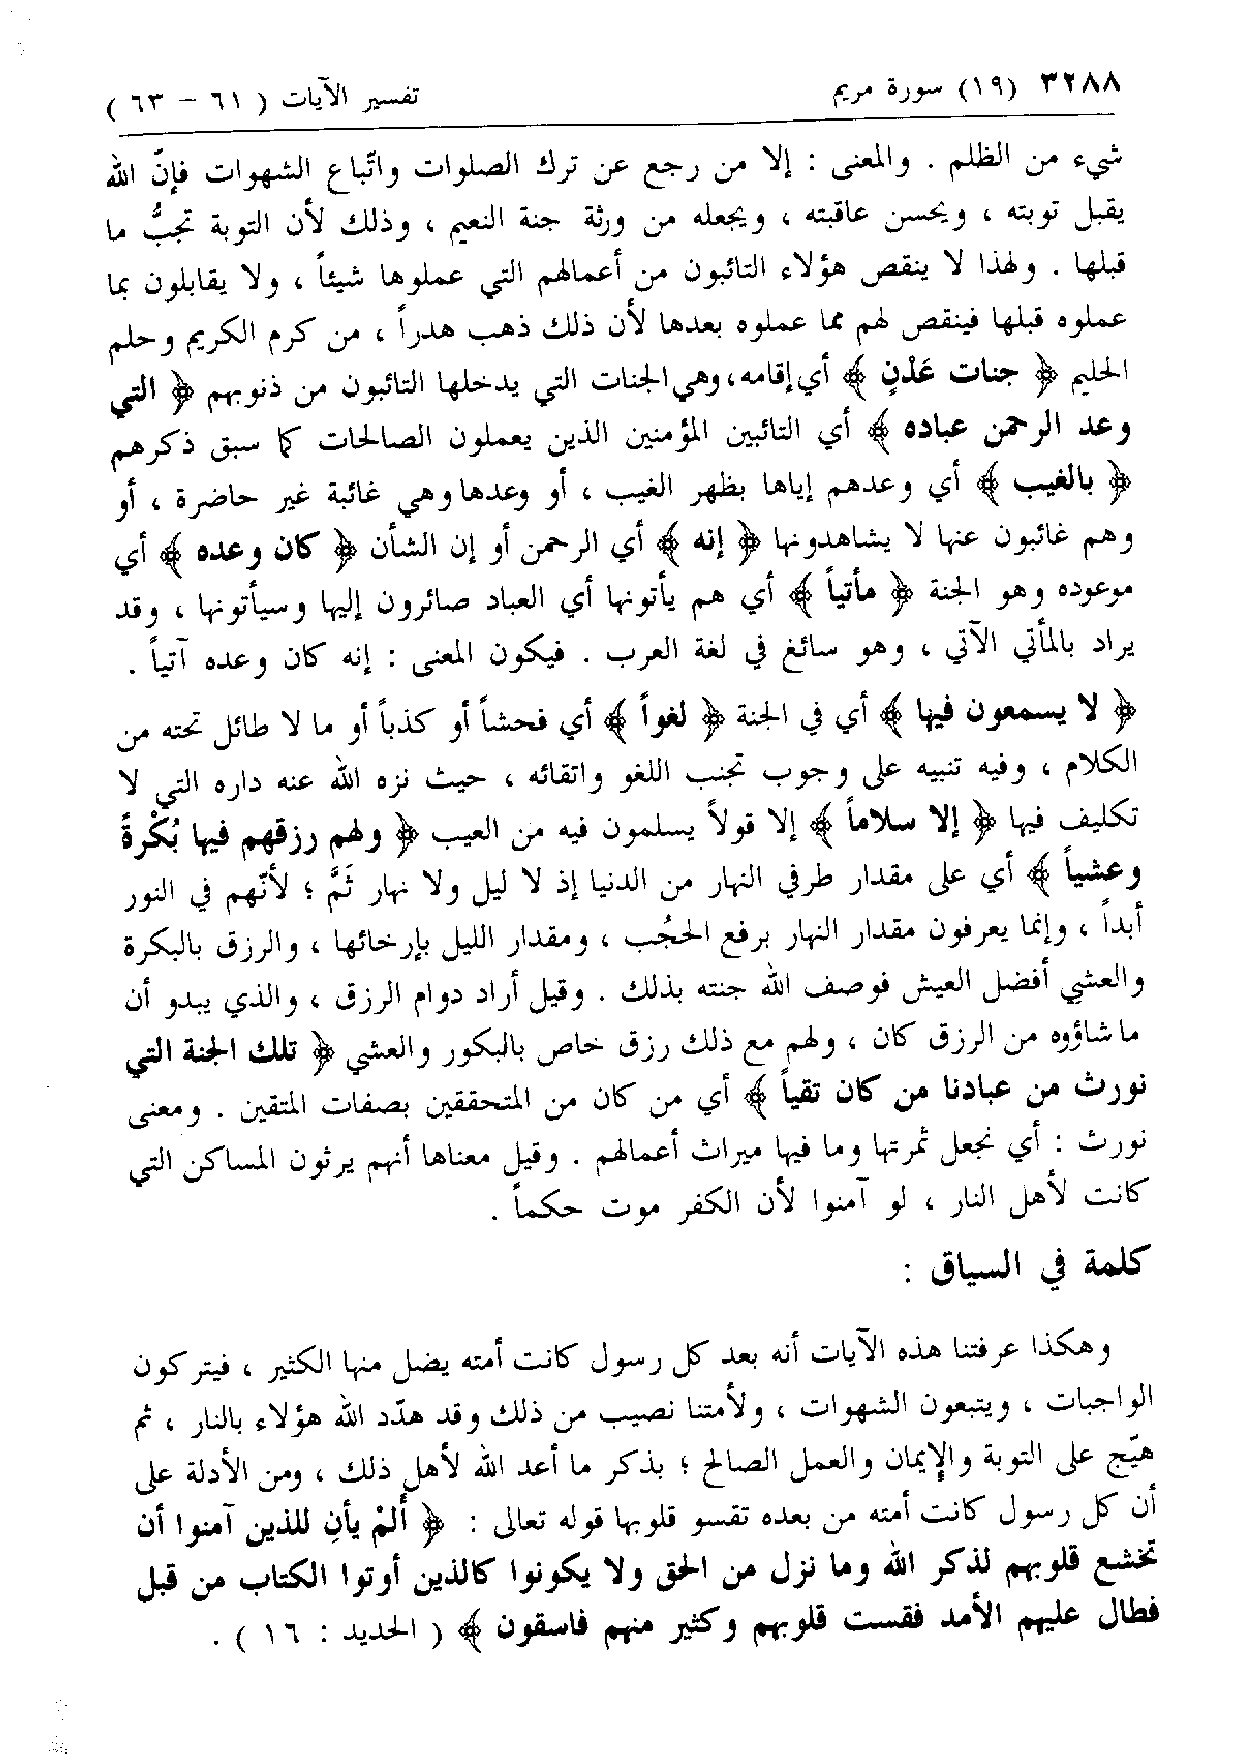 ٣٢٨٨ (١٩) سورة مريم تفسير الآيات ( ٦١ – ٦٣ )
شيء من الظلم . والمعنى : إلا من رجع عن ترك الصلوات واتّباع الشهوات فإنّ الله
يقبل توبته ، ويحسن عاقبته ، ويجعله من ورثة جنة النعيم ، وذلك لأن التوبة تجبُّ ما
قبلها . ولهذا لا ينقص هؤلاء التائبون من أعمالهم التي عملوها شيئاً ، ولا يقابلون بما
عملوه قبلها فينقص لهم مما عملوه بعدها لأن ذلك ذهب هدراً ، من كرم الكريم وحلم
الحليم ﴿ جنات عَدْنٍ ﴾ أي إقامه، وهي الجنات التي يدخلها التائبون من ذنوبهم ﴿ التي
وعد الرحمن عباده ﴾ أي التائبين المؤمنين الذين يعملون الصالحات كما سبق ذكرهم
﴿ بالغيب ﴾ أي وعدهم إياها بظهر الغيب ، أو وعدها وهي غائبة غير حاضرة ، أو
وهم غائبون عنها لا يشاهدونها ﴿ إنه ﴾ أي الرحمن أو إن الشأن ﴿ كان وعده ﴾ أي
موعوده وهو الجنة ﴿ مأتياً ﴾ أي هم يأتونها أي العباد صائرون إليها وسيأتونها ، وقد
يراد بالمأتي الآتي ، وهو سائغ في لغة العرب . فيكون المعنى : إنه كان وعده آتياً .
﴿ لا يسمعون فيها ﴾ أي في الجنة ﴿ لغواً ﴾ أي فحشاً أو كذباً أو ما لا طائل تحته من
الكلام ، وفيه تنبيه على وجوب تجنب اللغو واتقائه ، حيث نزه الله عنه داره التي لا
تكليف فيها ﴿ إلا سلاماً ﴾ إلا قولاً يسلمون فيه من العيب ﴿ ولهم رزقهم فيها بُكْرةً
وعشياً ﴾ أي على مقدار طرفي النهار من الدنيا إذ لا ليل ولا نهار ثَمَّ ؛ لأنّهم في النور
أبداً ، وإنما يعرفون مقدار النهار برفع الحجُب ، ومقدار الليل بإرخائها ، والرزق بالبكرة
والعشي أفضل العيش فوصف الله جنته بذلك . وقيل أراد دوام الرزق ، والذي يبدو أن
ماشاؤوه من الرزق كان ، ولهم مع ذلك رزق خاص بالبكور والعشي ﴿ تلك الجنة التي
نورث من عبادنا من كان تقياً ﴾ أي من كان من المتحققين بصفات المتقين . ومعنى
نورث : أي نجعل ثمرتها وما فيها ميراث أعمالهم . وقيل معناها أنهم يرثون المساكن التي
كانت لأهل النار ، لو آمنوا لأن الكفر موت حكماً .
كلمة في السياق :
وهكذا عرفتنا هذه الآيات أنه بعد كل رسول كانت أمته يضل منها الكثير ، فيتركون
الواجبات ، ويتبعون الشهوات ، ولأمتنا نصيب من ذلك وقد هدّد الله هؤلاء بالنار ، ثم
هيّج على التوبة والإيمان والعمل الصالح ؛ بذكر ما أعد الله لأهل ذلك ، ومن الأدلة على
أن كل رسول كانت أمته من بعده تقسو قلوبها قوله تعالى : ﴿ أَلمْ يأنِ للذين آمنوا أن
تخشع قلوبهم لذكر الله وما نزل من الحق ولا يكونوا كالذين أوتوا الكتاب من قبل
فطال عليهم الأمد فقست قلوبهم وكثير منهم فاسقون ﴾ ( الحديد : ١٦ ) .